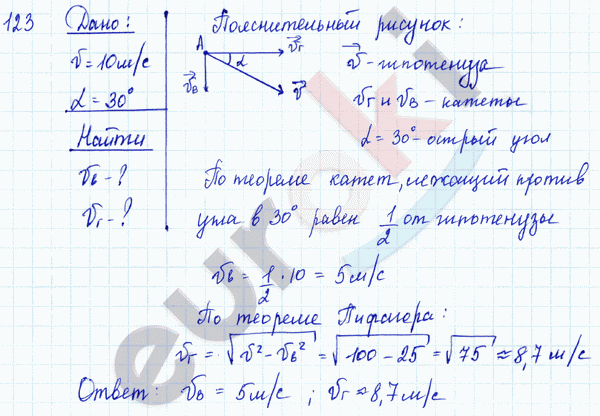 123 Дано:
v = 10 м/с
α = 30°
Найти
vв - ?
vг - ?
Пояснительный рисунок:
A
vг
α
vв
v
v - гипотенуза
vг и vв - катеты
α = 30° - острый угол
По теореме катет, лежащий против
угла в 30° равен 1/2 от гипотенузы
vв = 1/2 · 10 = 5 м/с
По теореме Пифагора:
vг = √(v² - vв²) = √(100 - 25) = √75 ≈ 8,7 м/с
Ответ: vв = 5 м/с ; vг ≈ 8,7 м/с
euroki